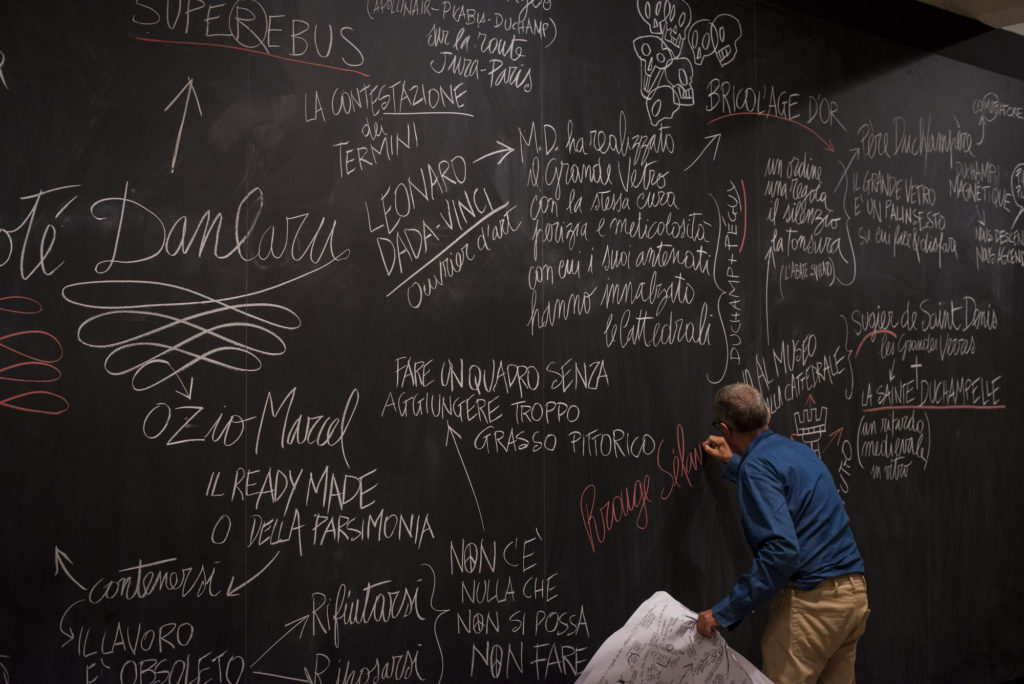 SUPEREBUS
(APOLLINAIR-PICABIA-DUCHAMP)
sur la route
Jura-Paris
LA CONTESTAZIONE
dei
TERMINI
LEONARO
DADA-VINCI
Ouvrier d'art
M.D. ha realizzato
il Grande Vetro
con la stessa cura
perizia e meticolosità
con cui i suoi antenati
hanno innalzato
le Cattedrali
DUCHAMP+PEGUY
BRICOL'AGE D'OR
un ordine
una regola
il silenzio
la tonsura
Père Duchampère
IL GRANDE VETRO
E' UN PALINSESTO
su cui fare & disfare
DUCHAMP
MAGNÉTIQUE
Danlaru
OZio Marcel
IL READY MADE
O DELLA PARSIMONIA
contenersi
IL LAVORO
E' OBSOLETO
Rifiutarsi
Riposarsi
FARE UN QUADRO SENZA
AGGIUNGERE TROPPO
GRASSO PITTORICO
NON C'È
NULLA CHE
NON SI POSSA
NON FARE
Rrouge Sélan
AL MUSEO
CATTEDRALE
sugier de Saint Denis
les Grandes Verres
LA SAINTE DUCHAMPELLE
(un ritardo
medievale
in vitro)